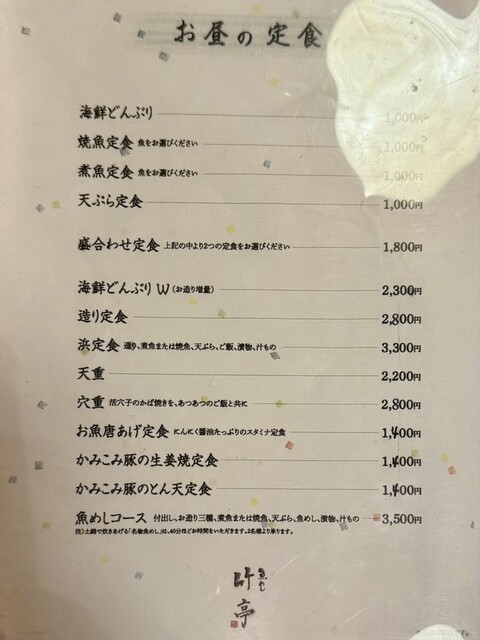 お昼の定食
海鮮どんぶり 1,000円
焼魚定食 魚をお選びください 1,000円
煮魚定食 魚をお選びください 1,000円
天ぷら定食 1,000円
盛合わせ定食 上記の中より2つの定食をお選びください 1,800円
海鮮どんぶり W (お造り増量) 2,300円
造り定食 2,800円
浜定食 造り、煮魚または焼魚、天ぷら、ご飯、漬物、汁もの 3,300円
天重 2,200円
穴重 活穴子のかば焼きを、あつあつのご飯と共に 2,800円
お魚唐あげ定食 にんにく醤油たっぷりのスタミナ定食 1,400円
かみこみ豚の生姜焼定食 1,400円
かみこみ豚のとん天定食 1,400円
魚めしコース 付出し、お造り三種、煮魚または焼魚、天ぷら、魚めし、漬物、汁もの 3,500円
注)土鍋で炊きあげる「名物魚めし」は、40分ほどお時間をいただきます。2名様より承ります。
魚めし
竹亭